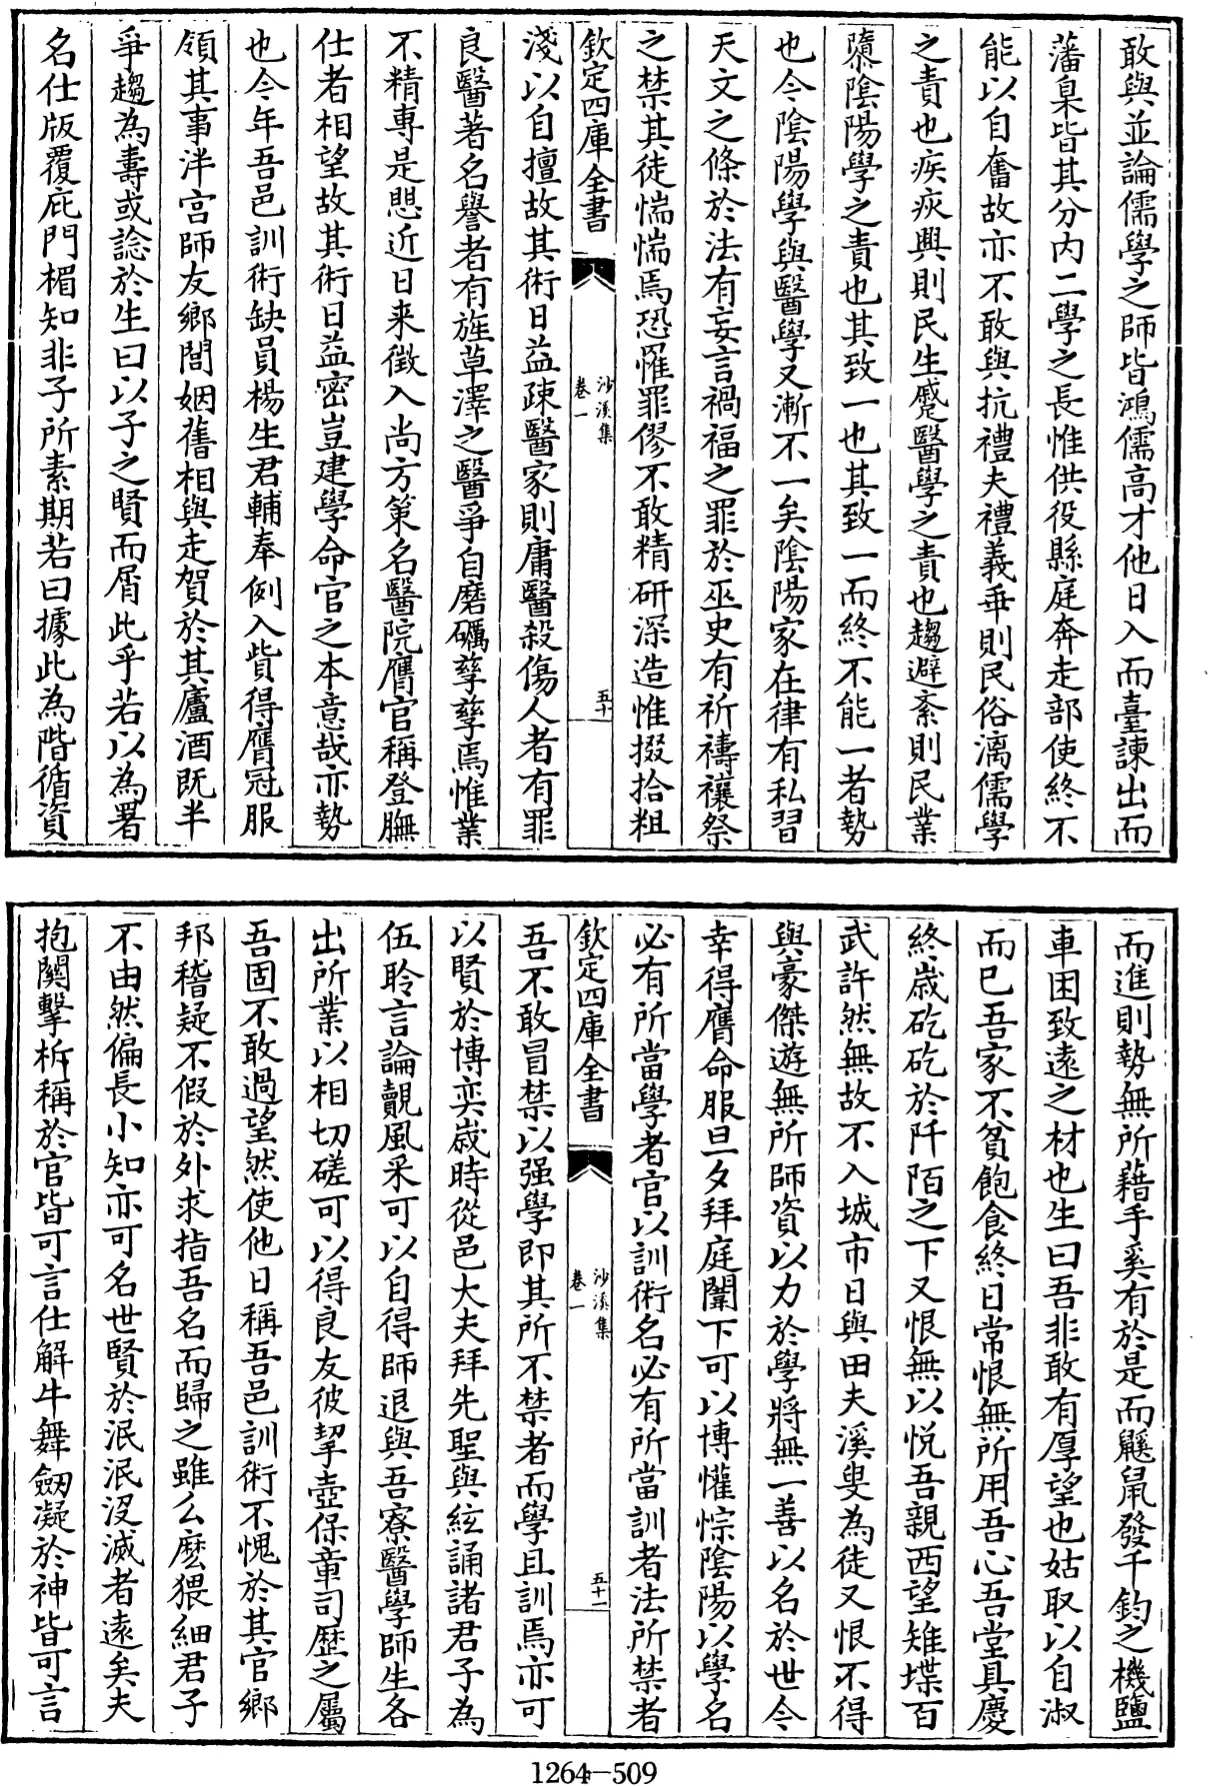 敢與並論儒學之師皆鴻儒高才他日入而臺諫出而
藩臬皆其分内二學之長惟供役縣庭奔走部使終不
能以自奮故亦不敢與抗禮夫禮義乖則民俗漓儒學
之責也疾疢興則民生蹙醫學之責也趨避紊則民業
隳陰陽學之責也其致一也其致一而終不能一者勢
也今陰陽學與醫學又漸不一矣陰陽家在律有私習
天文之條於法有妄言禍福之罪於巫史有祈禱禳祭
之禁其徒惴惴焉恐罹罪僇不敢精研深造惟掇拾粗
欽定四庫全書
沙溪集
卷一
五十
淺以自擅故其術日益疎醫家則庸醫殺傷人者有罪
良醫著名譽者有旌草澤之醫爭自磨礪孳孳焉惟業
不精專是愳近日来徵入尚方策名醫院膺官稱登膴
仕者相望故其術日益密豈建學命官之本意哉亦勢
也今年吾邑訓術缺員楊生君輔奉例入貲得膺冠服
領其事泮宮師友鄉閭姻舊相與走賀於其廬酒既半
爭趨為壽或諗於生曰以子之賢而屑此乎若以為署
名仕版覆庇門楣知非子所素期若曰據此為階循資
而進則勢無所藉手奚有於是而鼷鼠發千鈞之機鹽
車困致遠之材也生曰吾非敢有厚望也姑取以自淑
而已吾家不貧飽食終日常恨無所用吾心吾堂具慶
終歲矻矻於阡陌之下又恨無以悦吾親西望雉堞百
武許然無故不入城市日與田夫溪叟為徒又恨不得
與豪傑遊無所師資以力於學將無一善以名於世今
幸得膺命服旦夕拜庭闈下可以博懽悰陰陽以學名
必有所當學者官以訓術名必有所當訓者法所禁者
欽定四庫全書
沙溪集
卷一
五十一
吾不敢冒禁以强學即其所不禁者而學且訓焉亦可
以賢於博奕歲時從邑大夫拜先聖與絃誦諸君子為
伍聆言論覿風采可以自得師退與吾寮醫學師生各
出所業以相切磋可以得良友彼挈壺保章司歴之屬
吾固不敢過望然使他日稱吾邑訓術不愧於其官鄉
邦稽疑不假於外求指吾名而歸之雖么麽猥細君子
不由然偏長小知亦可名世賢於泯泯沒滅者逺矣夫
抱關擊柝稱於官皆可言仕解牛舞劒凝於神皆可言
1264—509